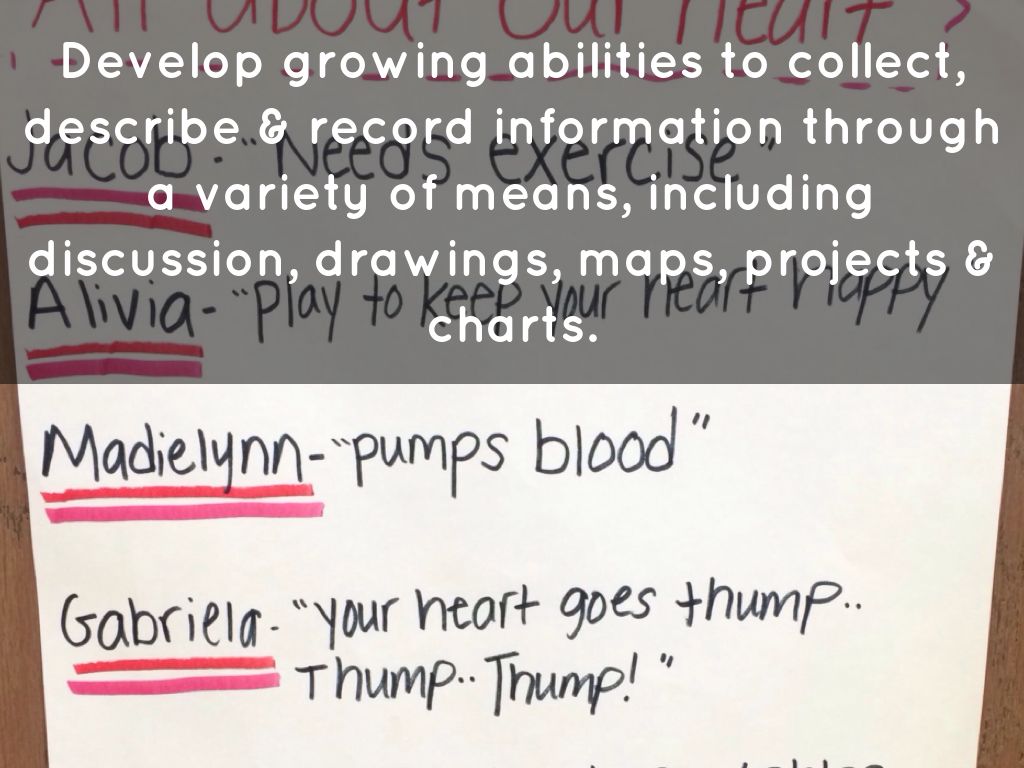 All about our heart
Develop growing abilities to collect,
describe & record information through
a variety of means, including
discussion, drawings, maps, projects &
charts.
Jacob - "Needs exercise"
Alivia - "play to keep your heart happy
Madielynn - "pumps blood"
Gabriela - "your heart goes thump..
Thump.. Thump!"